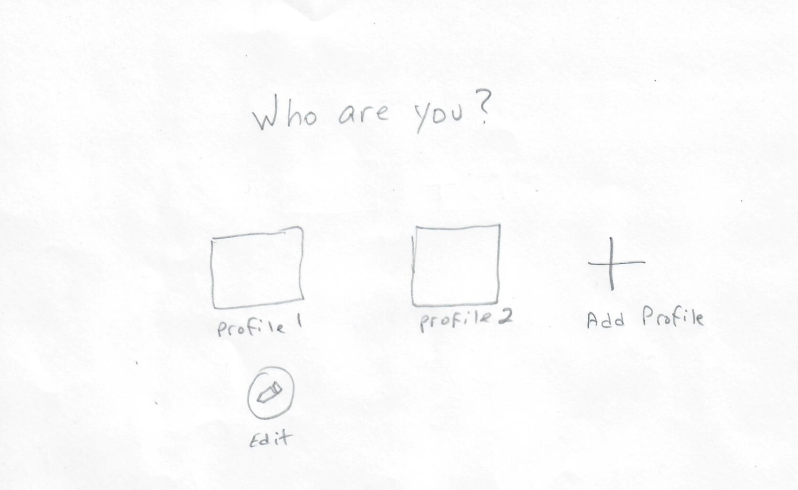 Who are you?
Profile 1
Profile 2
Add Profile
Edit